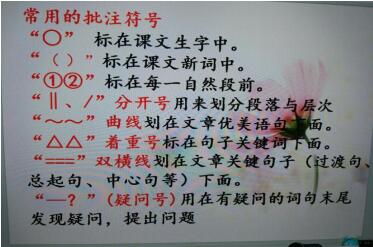 常用的批注符号
“○” 标在课文生字中。
“（ ）”标在课文新词中。
“①②”标在每一自然段前。
“‖、/”分开号用来划分段落与层次
“～～”曲线划在文章优美语句下面。
“△△”着重号标在句子关键词下面。
“===”双横线划在文章关键句子（过渡句、
总起句、中心句等）下面。
“—？”(疑问号)用在有疑问的词句末尾
发现疑问，提出问题